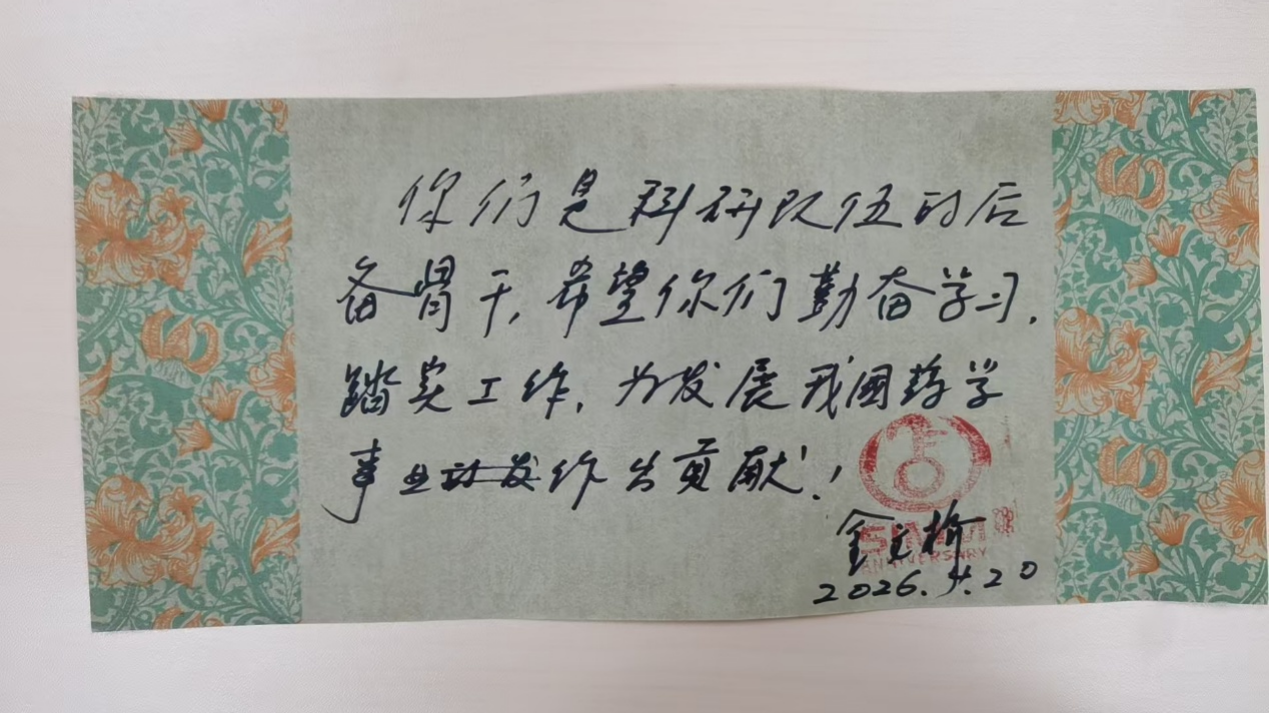 你们是科研队伍的后
备骨干,希望你们勤奋学习,
踏实工作,为发展我國药学
事业作出贡献!
SIMM
ANNIVERSARY
2026.4.20